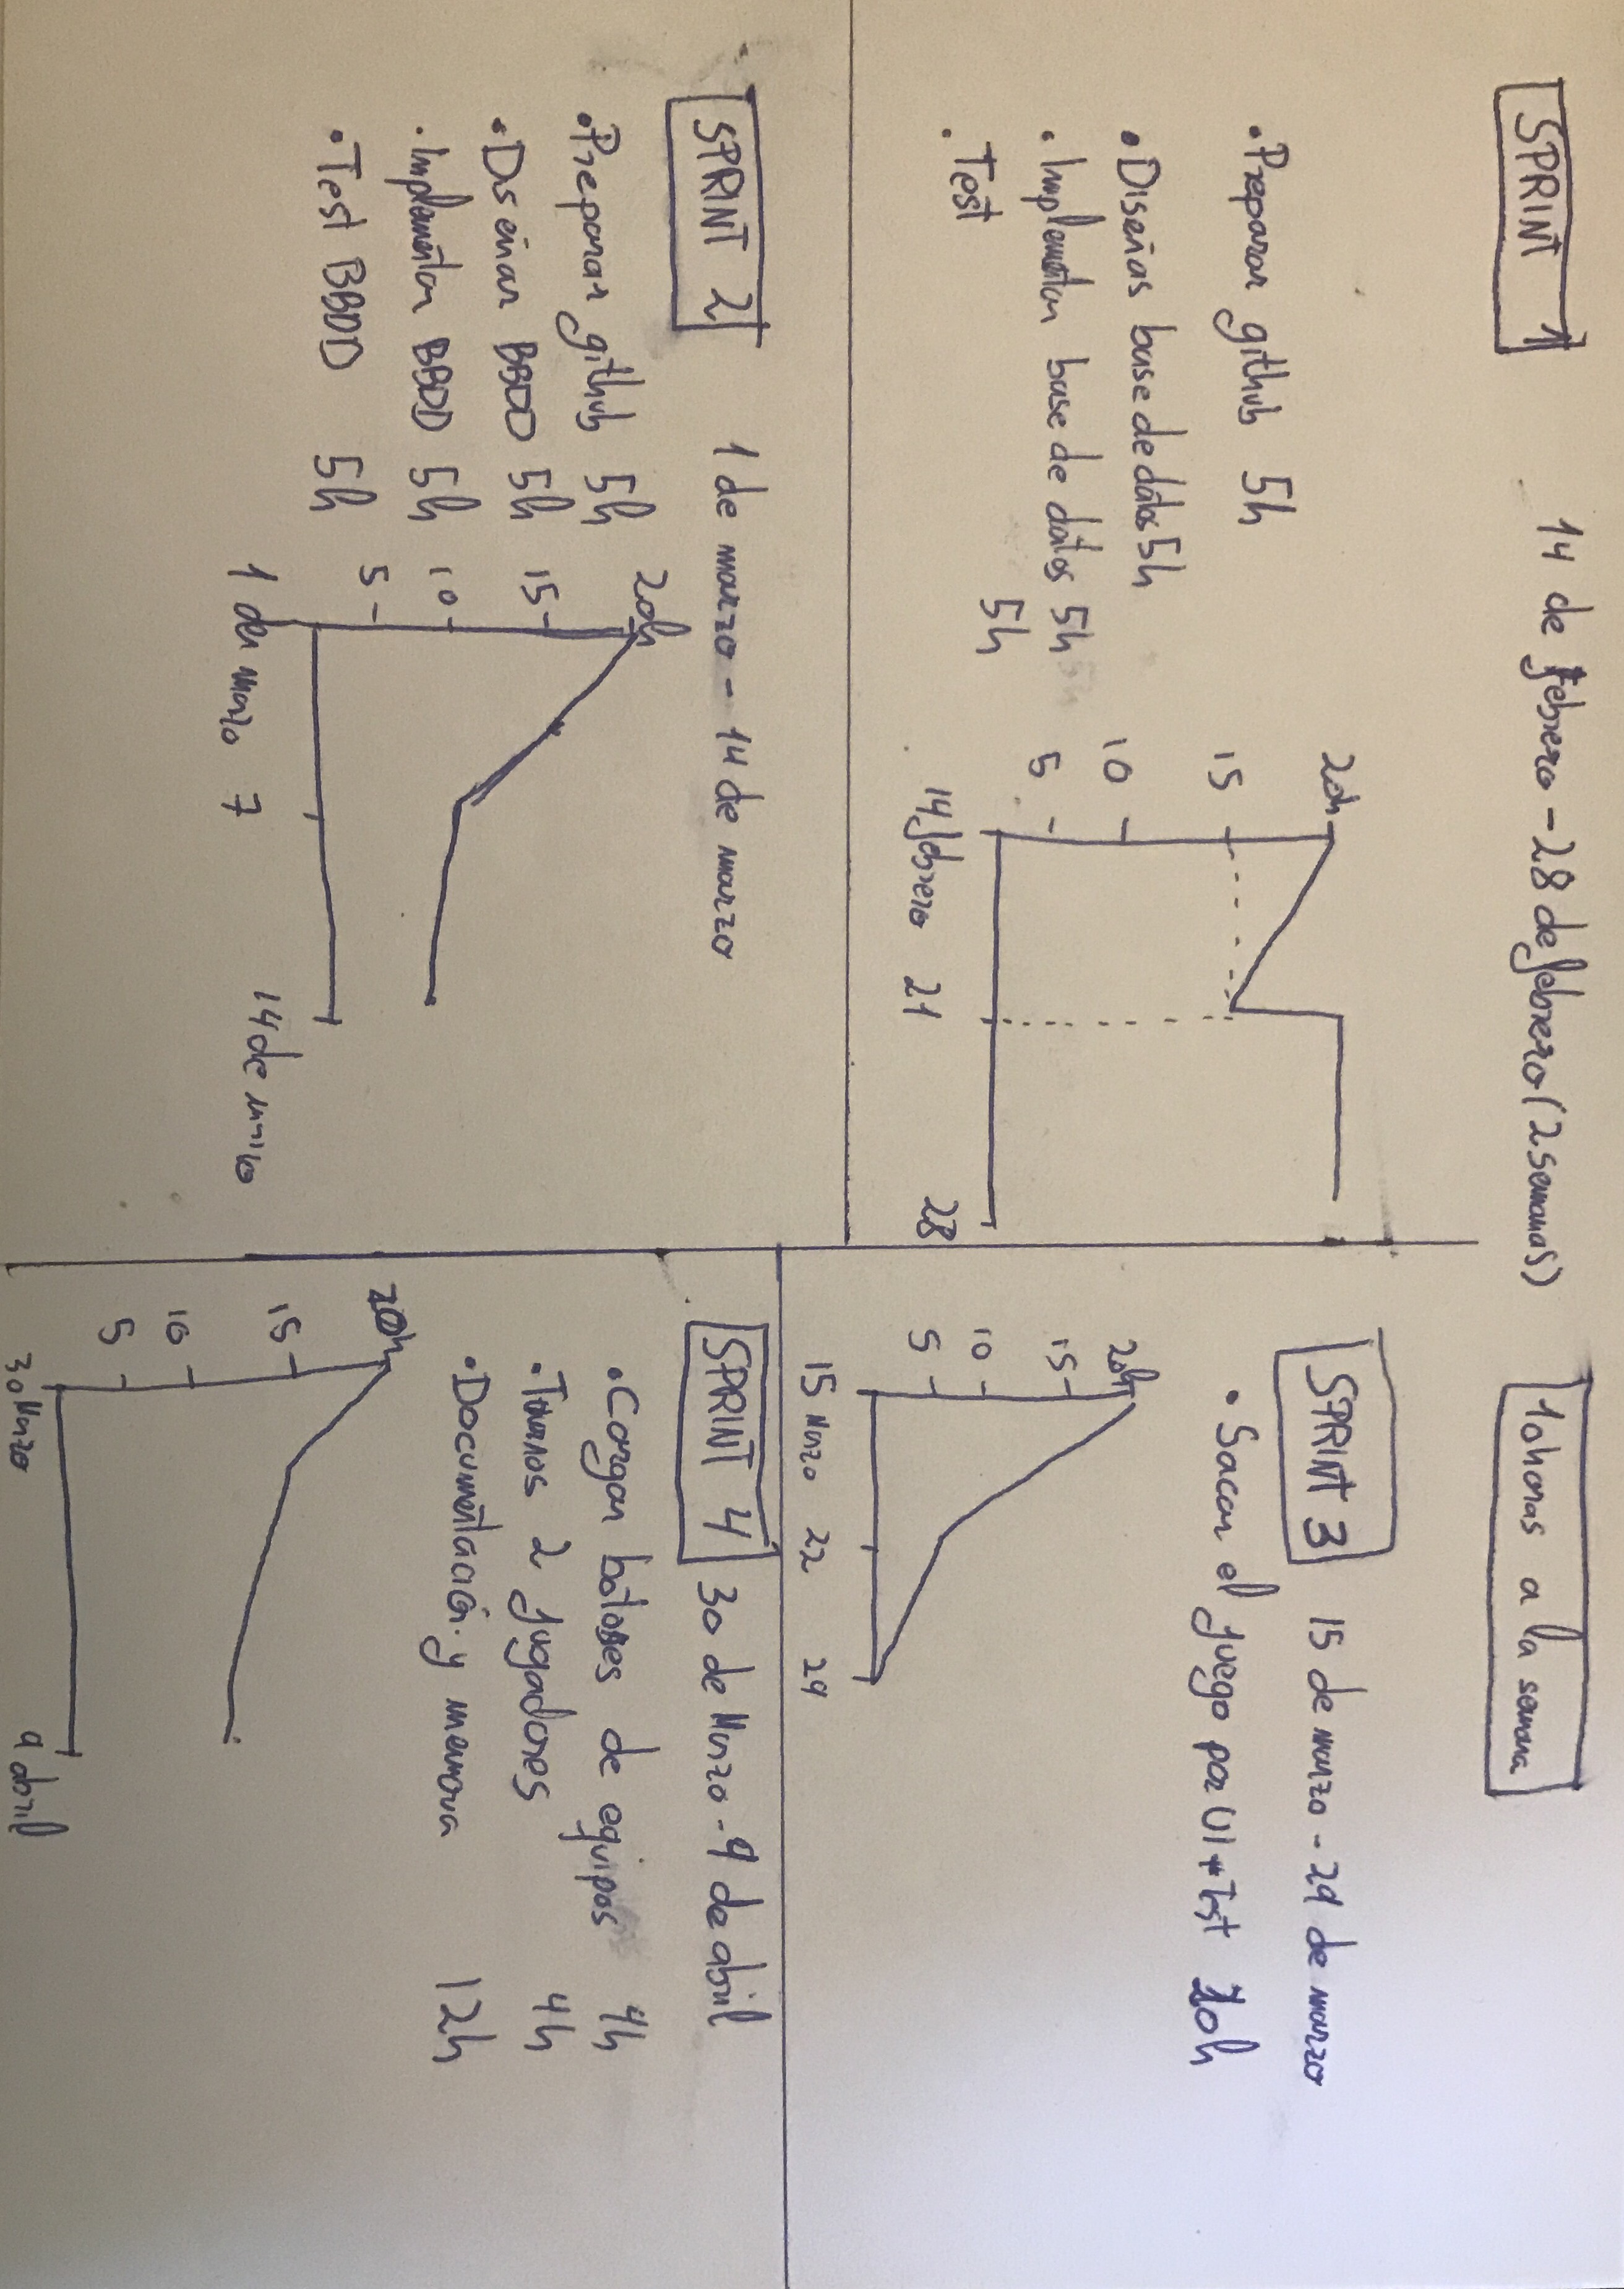 SPRINT 1 14 de febrero - 28 de febrero (2 semanas)
• Preparar github 5h
• Diseñas base de datos 5h
• Implementar base de datos 5h
• Test 5h
20h
15
10
5
14 febrero 21 28
SPRINT 2 1 de marzo - 14 de marzo
• Preparar github 5h
• Diseñar BBDD 5h
• Implementar BBDD 5h
• Test BBDD 5h
20h
15
10
5
1 de marzo 7 14 de marzo
10 horas a la semana
SPRINT 3 15 de marzo - 29 de marzo
• Sacar el juego por UI + Test 20h
20h
15
10
5
15 Marzo 22 29
SPRINT 4 30 de Marzo - 9 de abril
• Cargar botones de equipos 4h
• Turnos 2 jugadores 4h
• Documentación y memoria 12h
20h
15
10
5
30 Marzo 9 abril